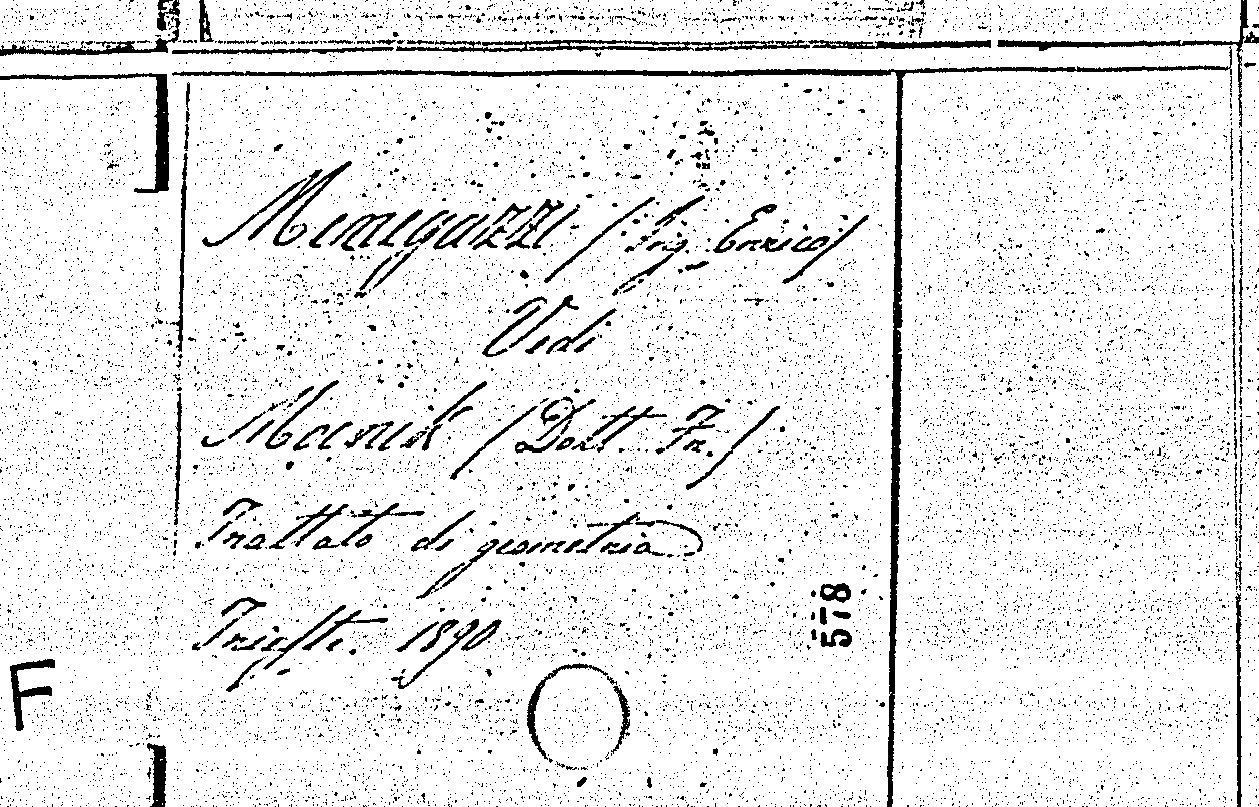 Menegazzi (Ing. Enrico)
Vedi
Mocnik (Dott. Fr.)
Trattato di geometria
Trieste. 1890
578
F